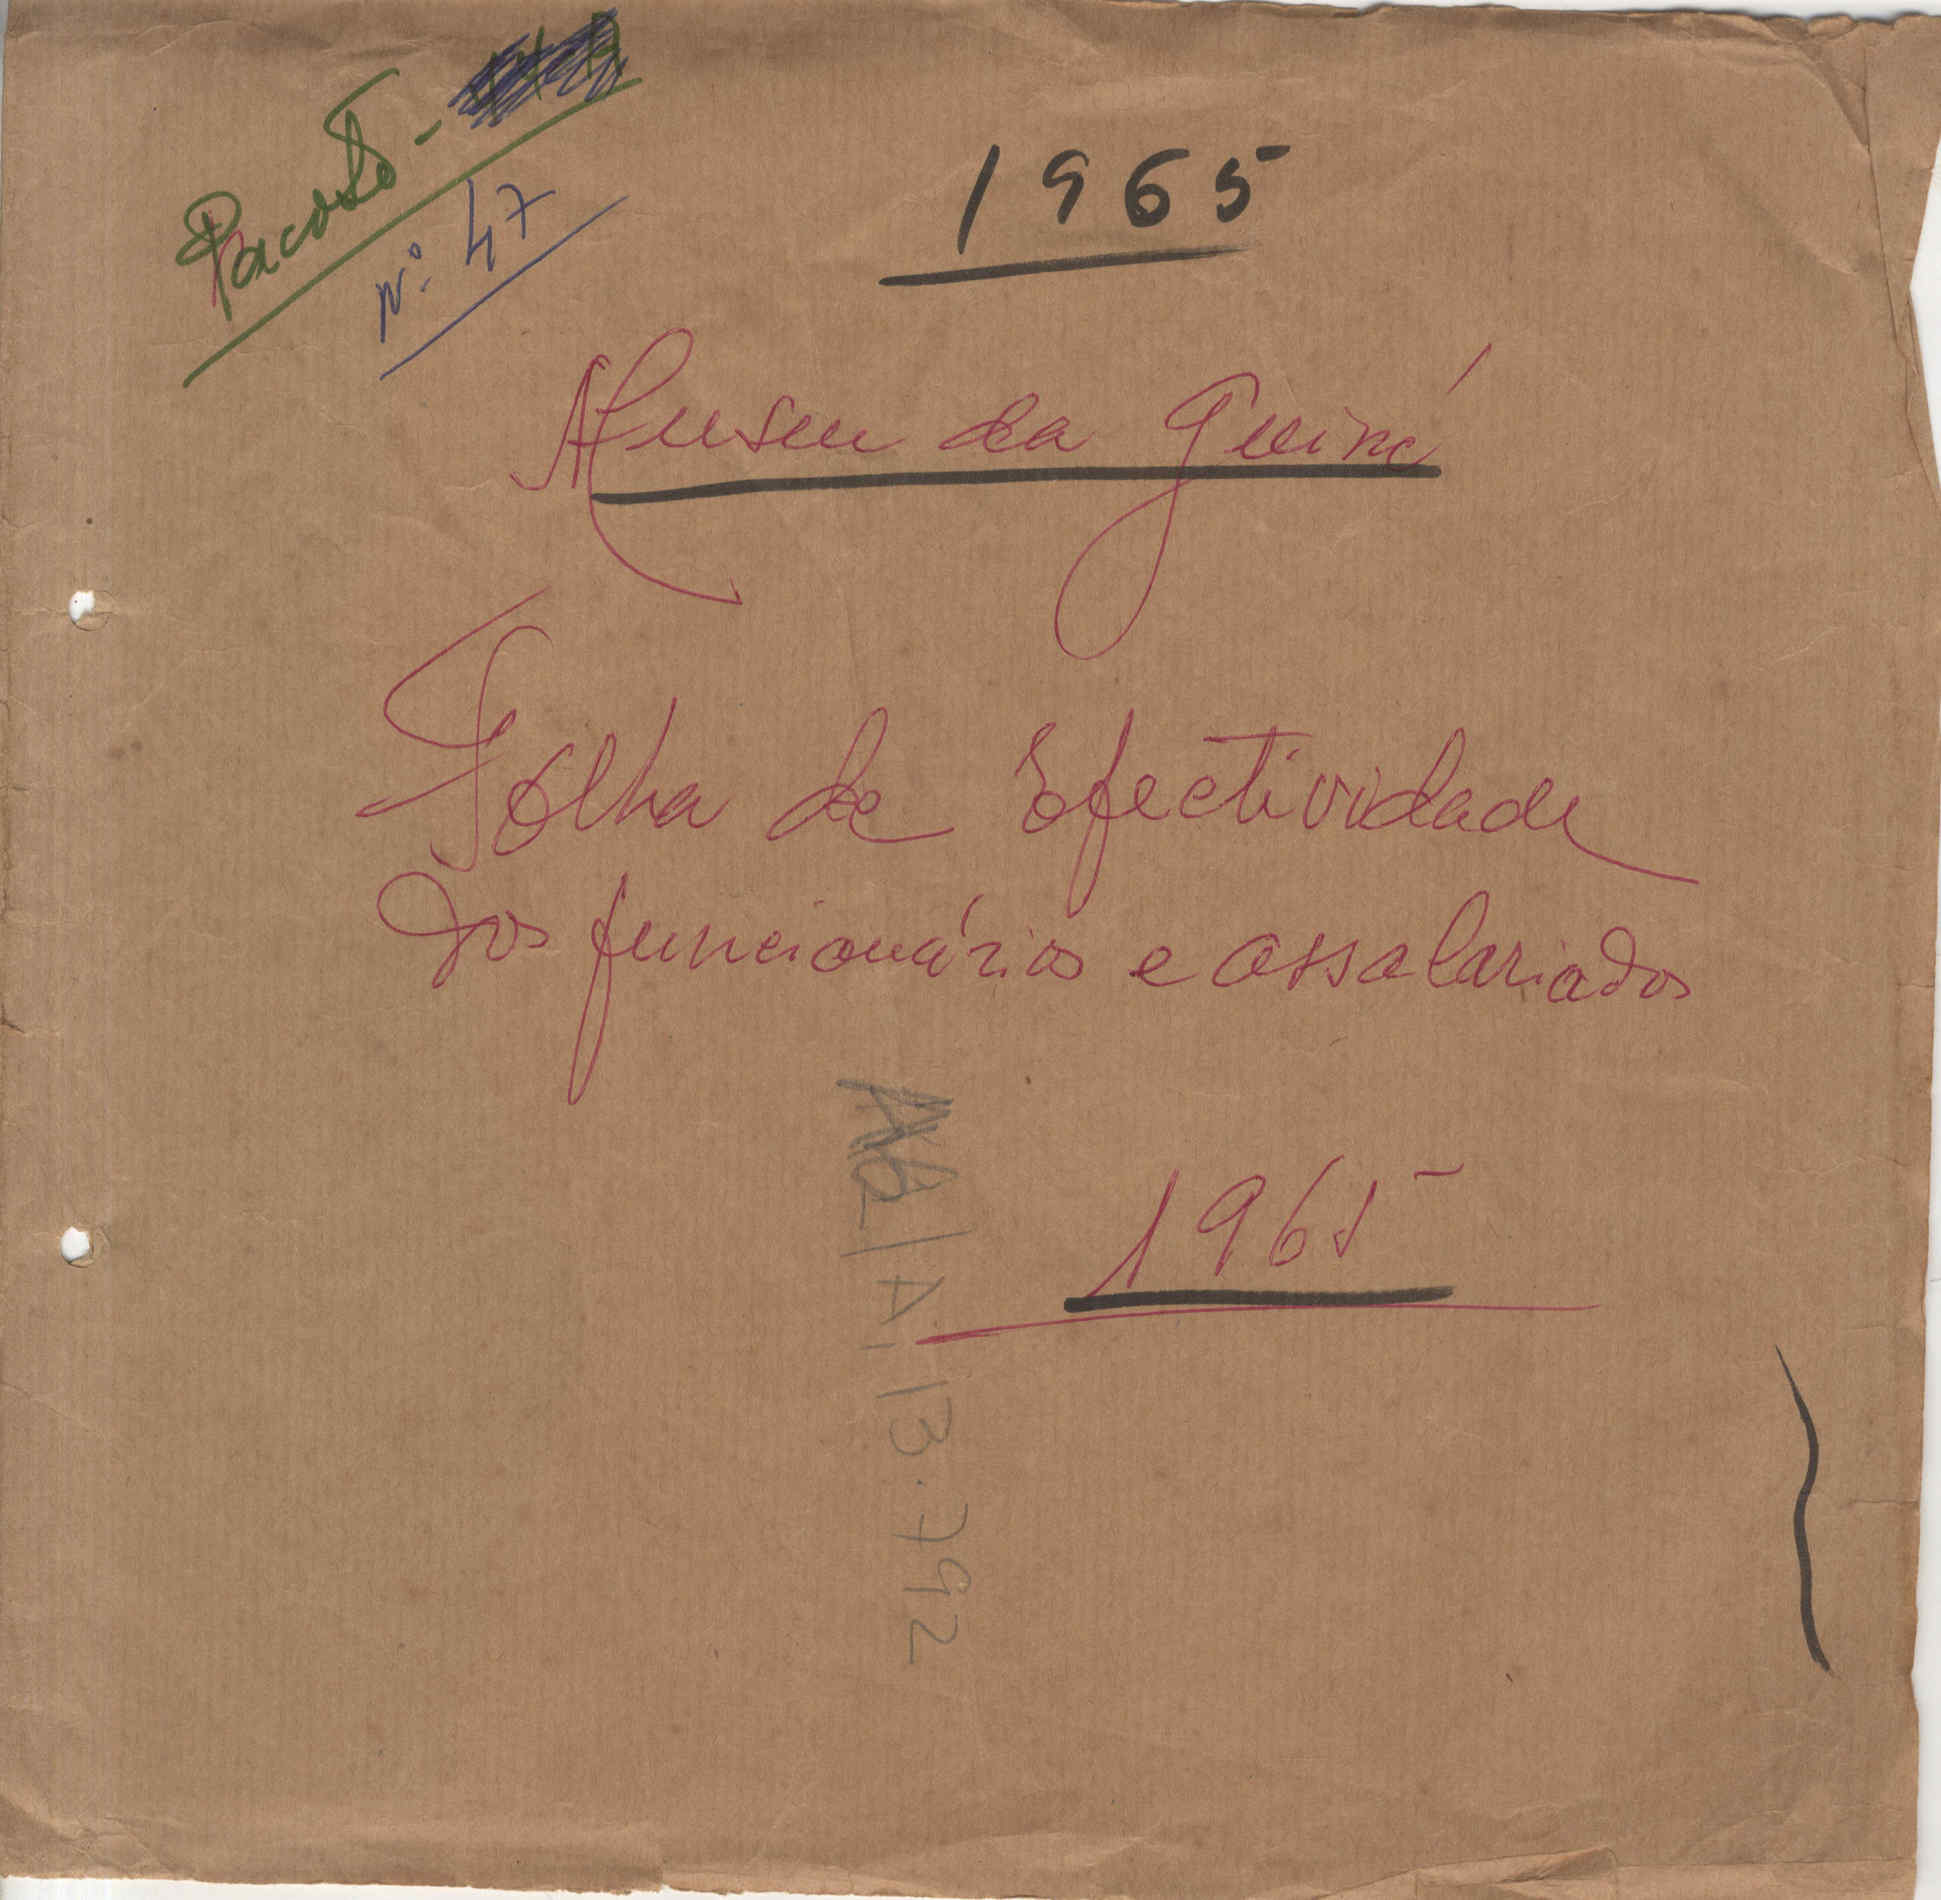 Pacote -
Nº 47
1965
Museu da Guiné
Folha de Efectividade
dos funcionários e assalariados
1965
A. 13.792